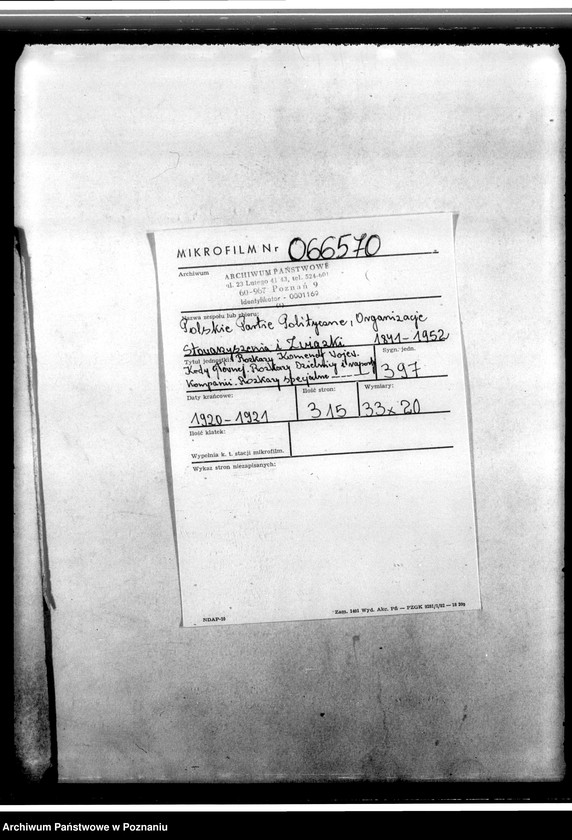 MIKROFILM Nr 066570
Archiwum
ARCHIWUM PAŃSTWOWE
ul. 23 Lutego 41/43, tel. 524-601
60-967 Poznań 9
Identyfikator - 0001169
Nazwa zespołu lub zbioru:
Polskie Partie Polityczne, Organizacje
Stowarzyszenia i Związki 1891-1952
Tytuł jednostki: Rozkazy Komendy Wojew.
Kody Głównej. Rozkazy Dzielnicy i raporty
Kompanii. Rozkazy specjalne
Sygn. jedn.
397
Daty krańcowe:
1920-1921
Ilość stron:
315
Wymiary:
33x20
Ilość klatek:
Wypełnia k. t. stacji mikrofilm.
Wykaz stron niezapisanych:
NDAP-16
Zam. 1401 Wyd. Akc. Pń — PZGK
Archiwum Państwowe w Poznaniu